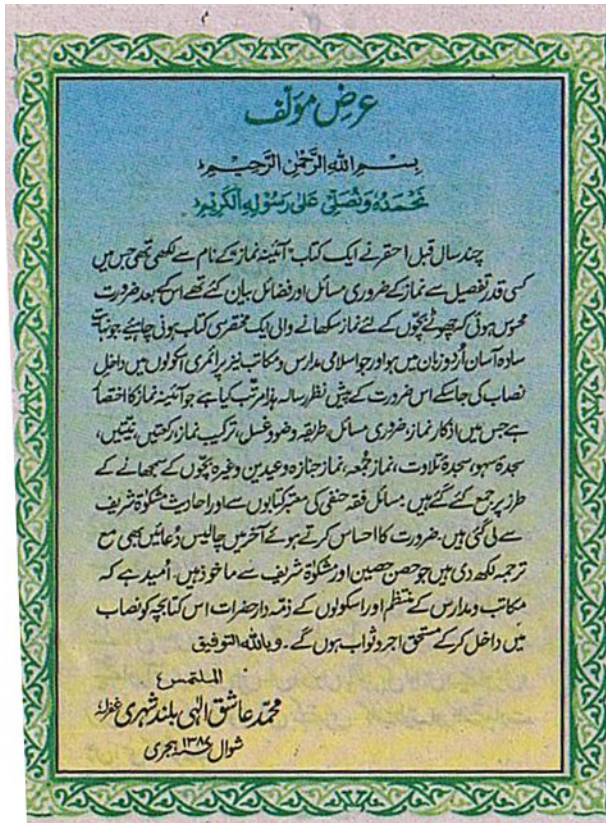 عرضِ مؤلّف
بِسْمِ اللهِ الرَّحْمٰنِ الرَّحِيْمِ
نَحْمَدُهُ وَنُصَلِّيْ عَلٰى رَسُوْلِهِ الْكَرِيْمِ
چند سال قبل احقر نے ایک کتاب "آئینہ نماز" کے نام سے لکھی تھی جس میں
کسی قدر تفصیل سے نماز کے ضروری مسائل اور فضائل بیان کئے تھے اس کے بعد ضرورت
محسوس ہوئی کہ چھوٹے بچّوں کے لئے نماز سکھانے والی ایک مختصر سی کتاب ہونی چاہیئے جو نہایت
سادہ آسان اُردو زبان میں ہو اور جو اسلامی مدارس و مکاتب نیز پرائمری اسکولوں میں داخل
نصاب کی جا سکے اس ضرورت کے پیش نظر رسالہ ہذا مرتّب کیا ہے جو آئینہ نماز کا اختصار
ہے جس میں اذکار نماز، ضروری مسائل، طریقہ وضو و غسل، ترکیب نماز، رکعتیں، نیتیں،
سجدۂ سہو، سجدۂ تلاوت، نماز جمعہ، نماز جنازہ و عیدین وغیرہ بچّوں کے سمجھانے کے
طرز پر جمع کئے گئے ہیں۔ مسائل فقہ حنفی کی معتبر کتابوں سے اور احادیث مشکوٰۃ شریف
سے لی گئی ہیں۔ ضرورت کا احساس کرتے ہوئے آخر میں چالیس دُعائیں بھی مع
ترجمہ لکھ دی ہیں جو حصن حصین اور مشکوٰۃ شریف سے ماخوذ ہیں۔ اُمید ہے کہ
مکاتب و مدارس کے منتظم اور اسکولوں کے ذمّہ دار حضرات اس کتابچہ کو نصاب
میں داخل کر کے مستحق اجر و ثواب ہوں گے۔ وباللہ التوفیق
الملتمس
محمّد عاشق الٰہی بلند شہری غفرلہٗ
شوال ھجری